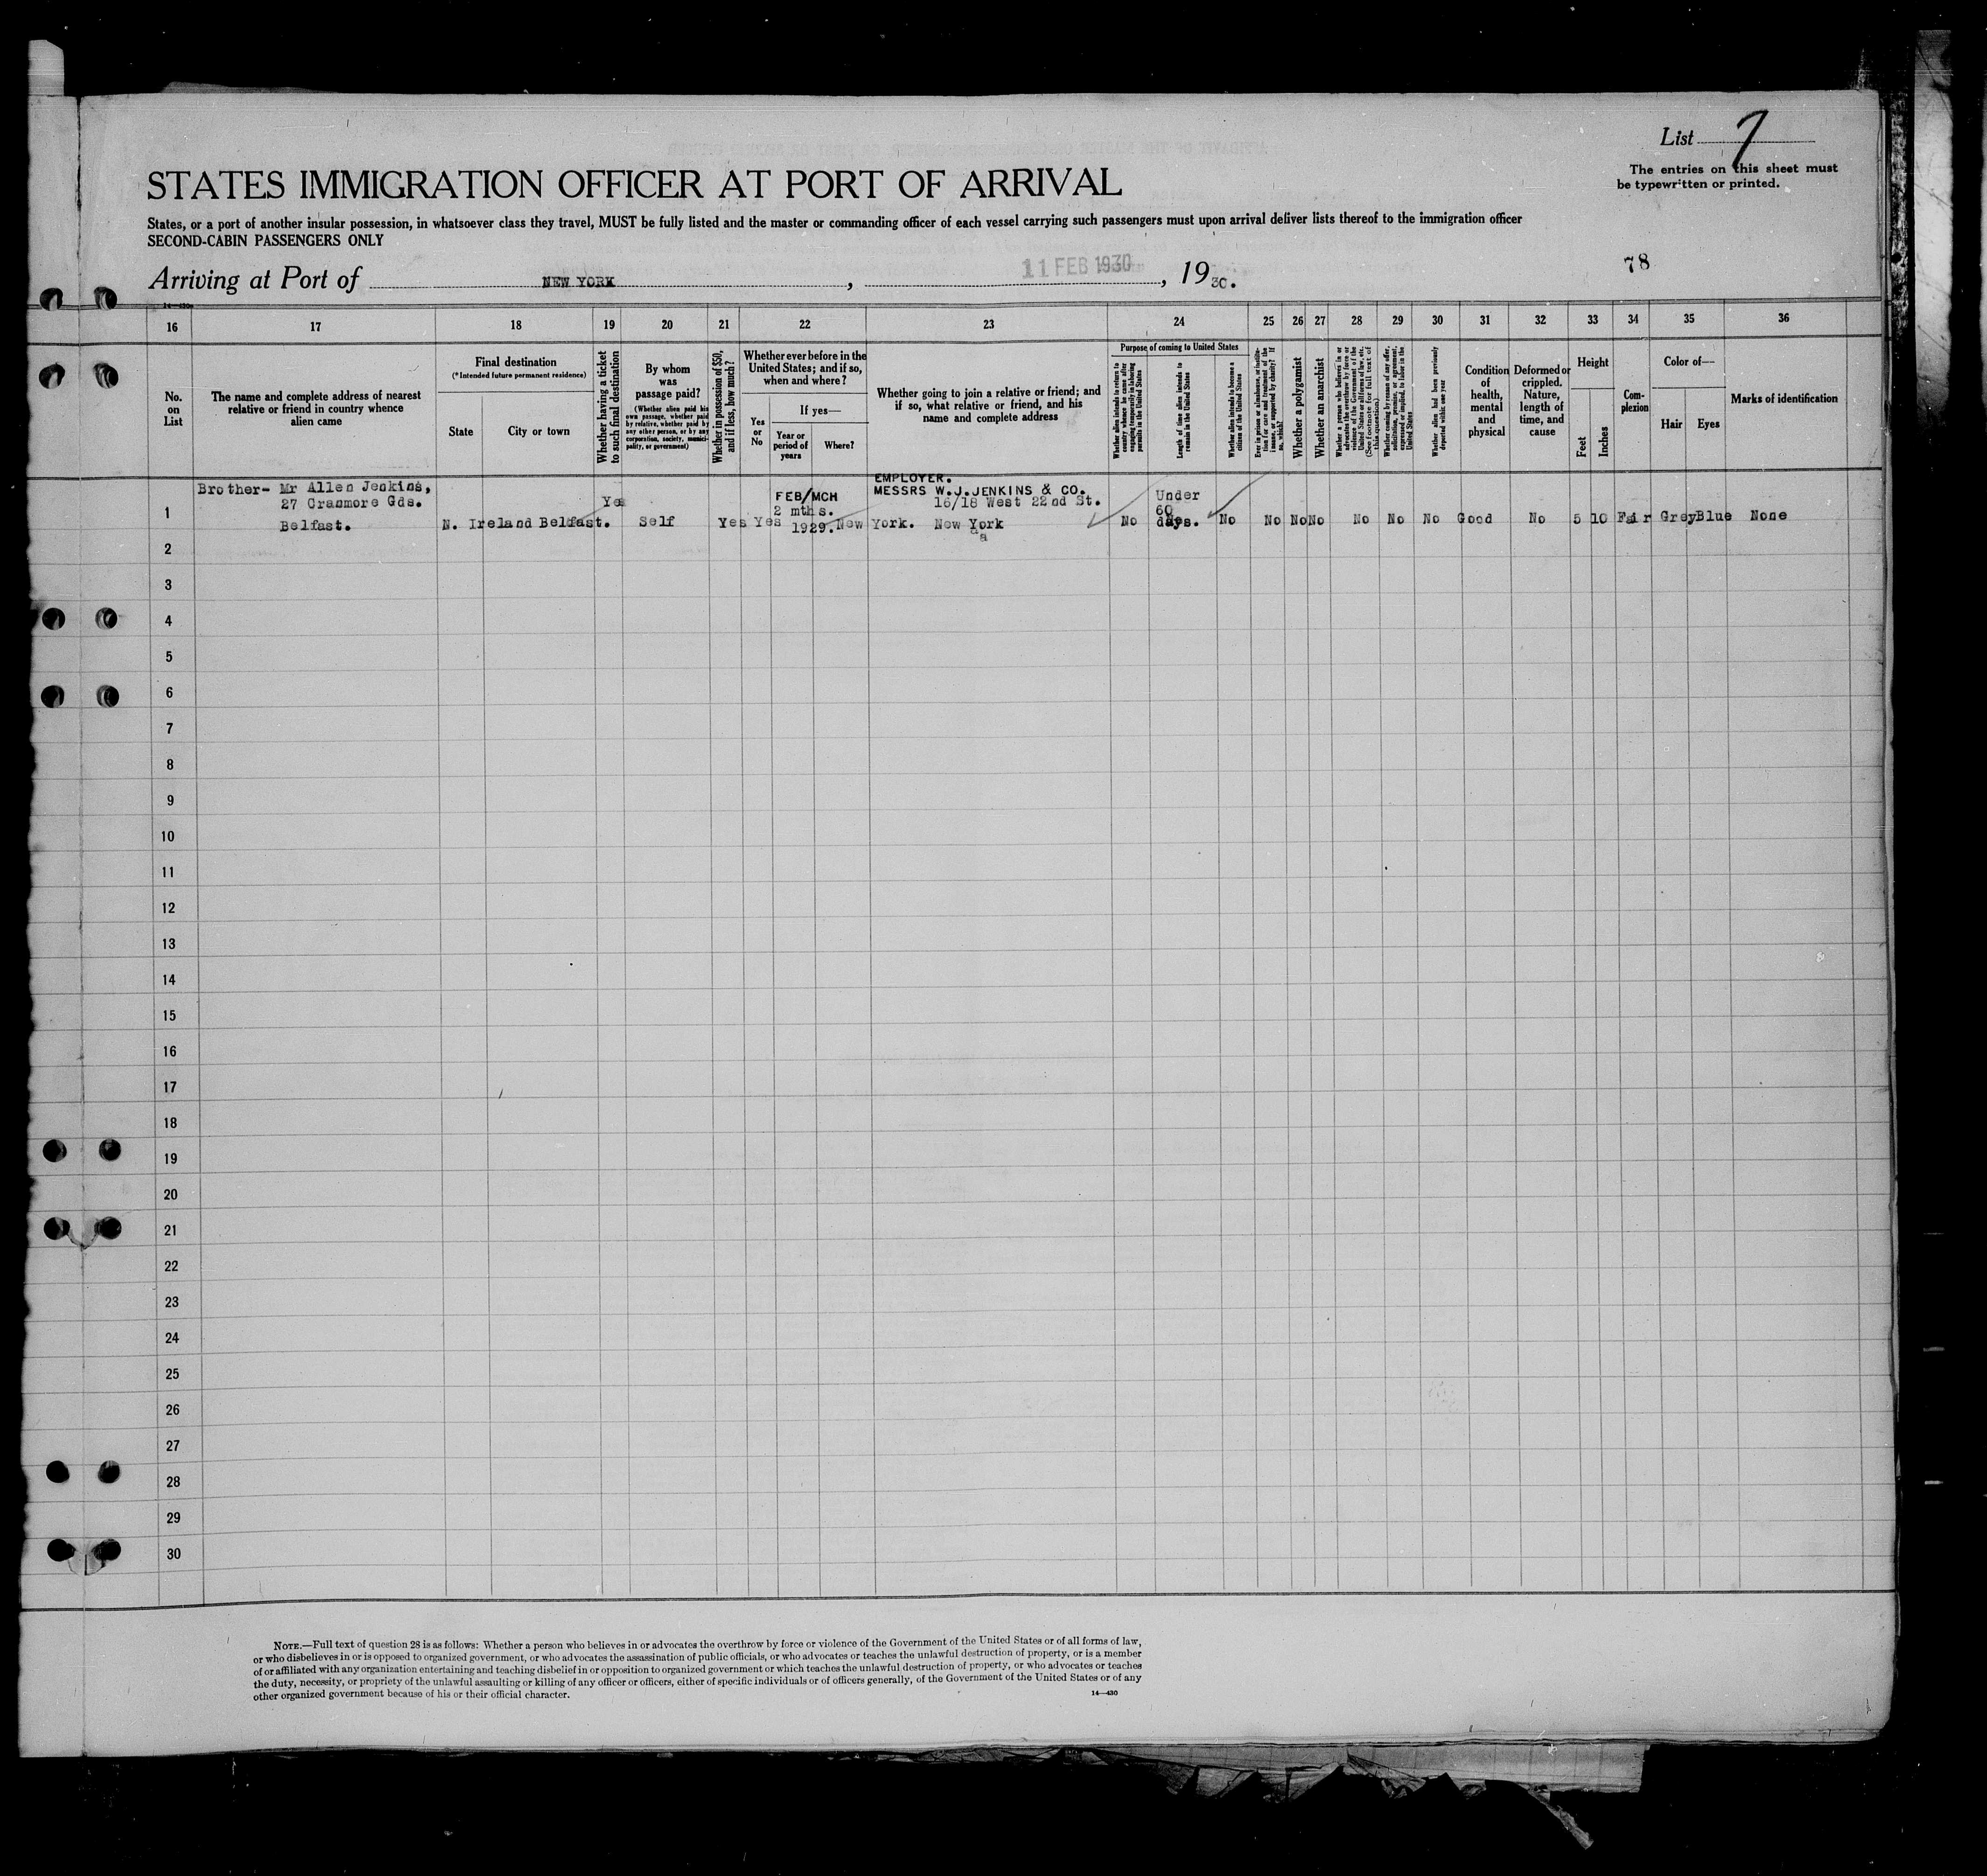 List 7
The entries on this sheet must
be typewritten or printed.
STATES IMMIGRATION OFFICER AT PORT OF ARRIVAL
States, or a port of another insular possession, in whatsoever class they travel, MUST be fully listed and the master or commanding officer of each vessel carrying such passengers must upon arrival deliver lists thereof to the immigration officer
SECOND-CABIN PASSENGERS ONLY
78
Arriving at Port of NEW YORK, 11 FEB 1930, 1930.
14—430
16 17 18 19 20 21 22 23 24 25 26 27 28 29 30 31 32 33 34 35 36
No.
on
List
The name and complete address of nearest
relative or friend in country whence
alien came
Final destination
(*Intended future permanent residence)
State
City or town
Whether having a ticket
to such final destination
By whom
was
passage paid?
(Whether alien paid his
own passage, whether paid
by relative, whether paid by
any other person, or by any
corporation, society, munici-
pality, or government)
Whether in possession of $50,
and if less, how much?
Whether ever before in the
United States; and if so,
when and where?
Yes
or
No
If yes—
Year or
period of
years
Where?
Whether going to join a relative or friend; and
if so, what relative or friend, and his
name and complete address
Purpose of coming to United States
Whether alien intends to return to
country whence he came after
engaging temporarily in laboring
pursuits in the United States
Length of time alien intends to
remain in the United States
Whether alien intends to become a
citizen of the United States
Ever in prison or almshouse, or institu-
tion for care and treatment of the
insane, or supported by charity? If
so, which?
Whether a polygamist
Whether an anarchist
Whether a person who believes in or
advocates the overthrow by force or
violence of the Government of the
United States or all forms of law, etc.
(See footnote for full text of
this question)
Whether coming by reason of any offer,
solicitation, promise, or agreement,
expressed or implied, to labor in the
United States
Whether alien had been previously
deported within one year
Condition
of
health,
mental
and
physical
Deformed or
crippled.
Nature,
length of
time, and
cause
Height
Feet
Inches
Com-
plexion
Color of—
Hair
Eyes
Marks of identification
EMPLOYER.
Brother- Mr Allen Jenkins, FEB/MCH MESSRS W.J.JENKINS & CO. Under
27 Cranmore Gds. Yes 2 mths. 16/18 West 22nd St. 60
1 Belfast. N. Ireland Belfast. Self Yes Yes 1929. New York. New York No days. No No No No No No No Good No 5 10 Fair Grey Blue None
a
2
3
4
5
6
7
8
9
10
11
12
13
14
15
16
17
18
19
20
21
22
23
24
25
26
27
28
29
30
NOTE.—Full text of question 28 is as follows: Whether a person who believes in or advocates the overthrow by force or violence of the Government of the United States or of all forms of law,
or who disbelieves in or is opposed to organized government, or who advocates the assassination of public officials, or who advocates or teaches the unlawful destruction of property, or is a member
of or affiliated with any organization entertaining and teaching disbelief in or opposition to organized government or which teaches the unlawful destruction of property, or who advocates or teaches
the duty, necessity, or propriety of the unlawful assaulting or killing of any officer or officers, either of specific individuals or of officers generally, of the Government of the United States or of any
other organized government because of his or their official character.
14—430